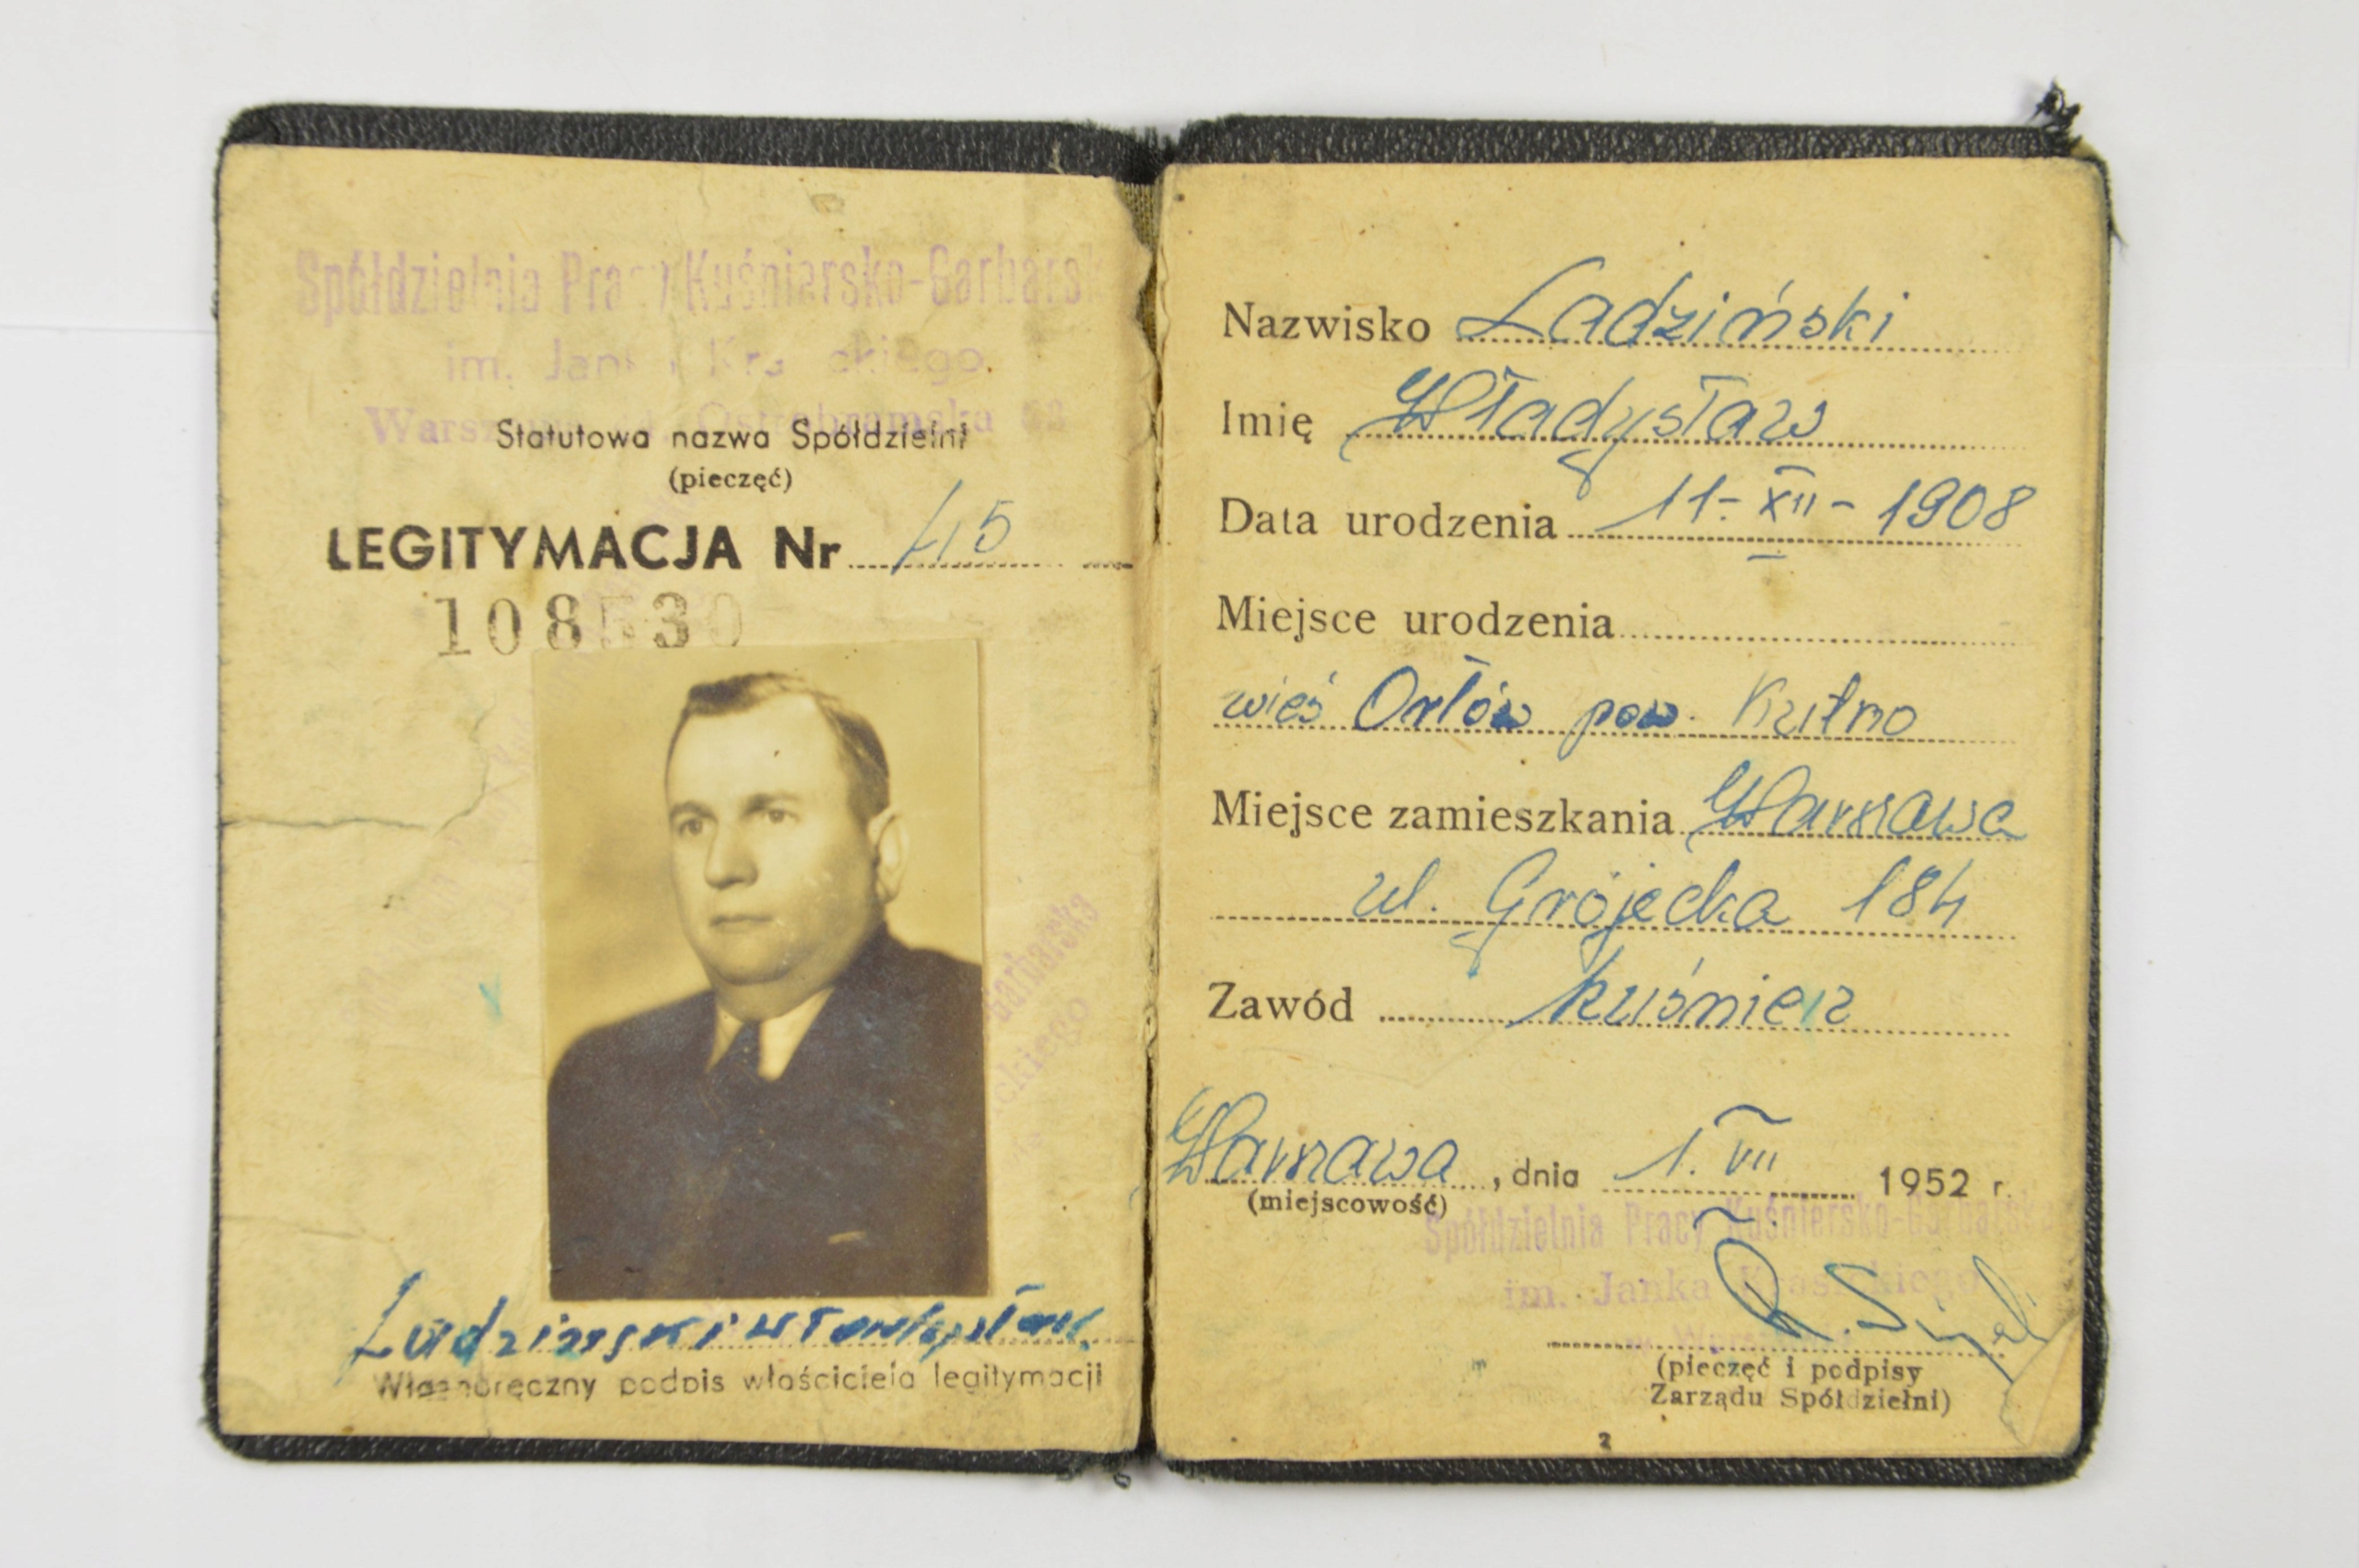 Spółdzielnia Pracy Kuśniersko-Garbarsk
im. Janka
Statutowa nazwa Spółdzielni
(pieczęć)
LEGITYMACJA Nr 45
Ladziński Władysław
Własnoręczny podpis właściciela legitymacji
Nazwisko Ladziński
Imię Władysław
Data urodzenia 11-XII-1908
Miejsce urodzenia
wieś Orłów pow. Kutno
Miejsce zamieszkania Warszawa
ul. Grójecka 184
Zawód kuśnierz
Warszawa, dnia 1. VII 1952 r.
(miejscowość)
Spółdzielnia Pracy Kuśniersko-Garbarska
im. Janka
(pieczęć i podpisy
Zarządu Spółdzielni)
2